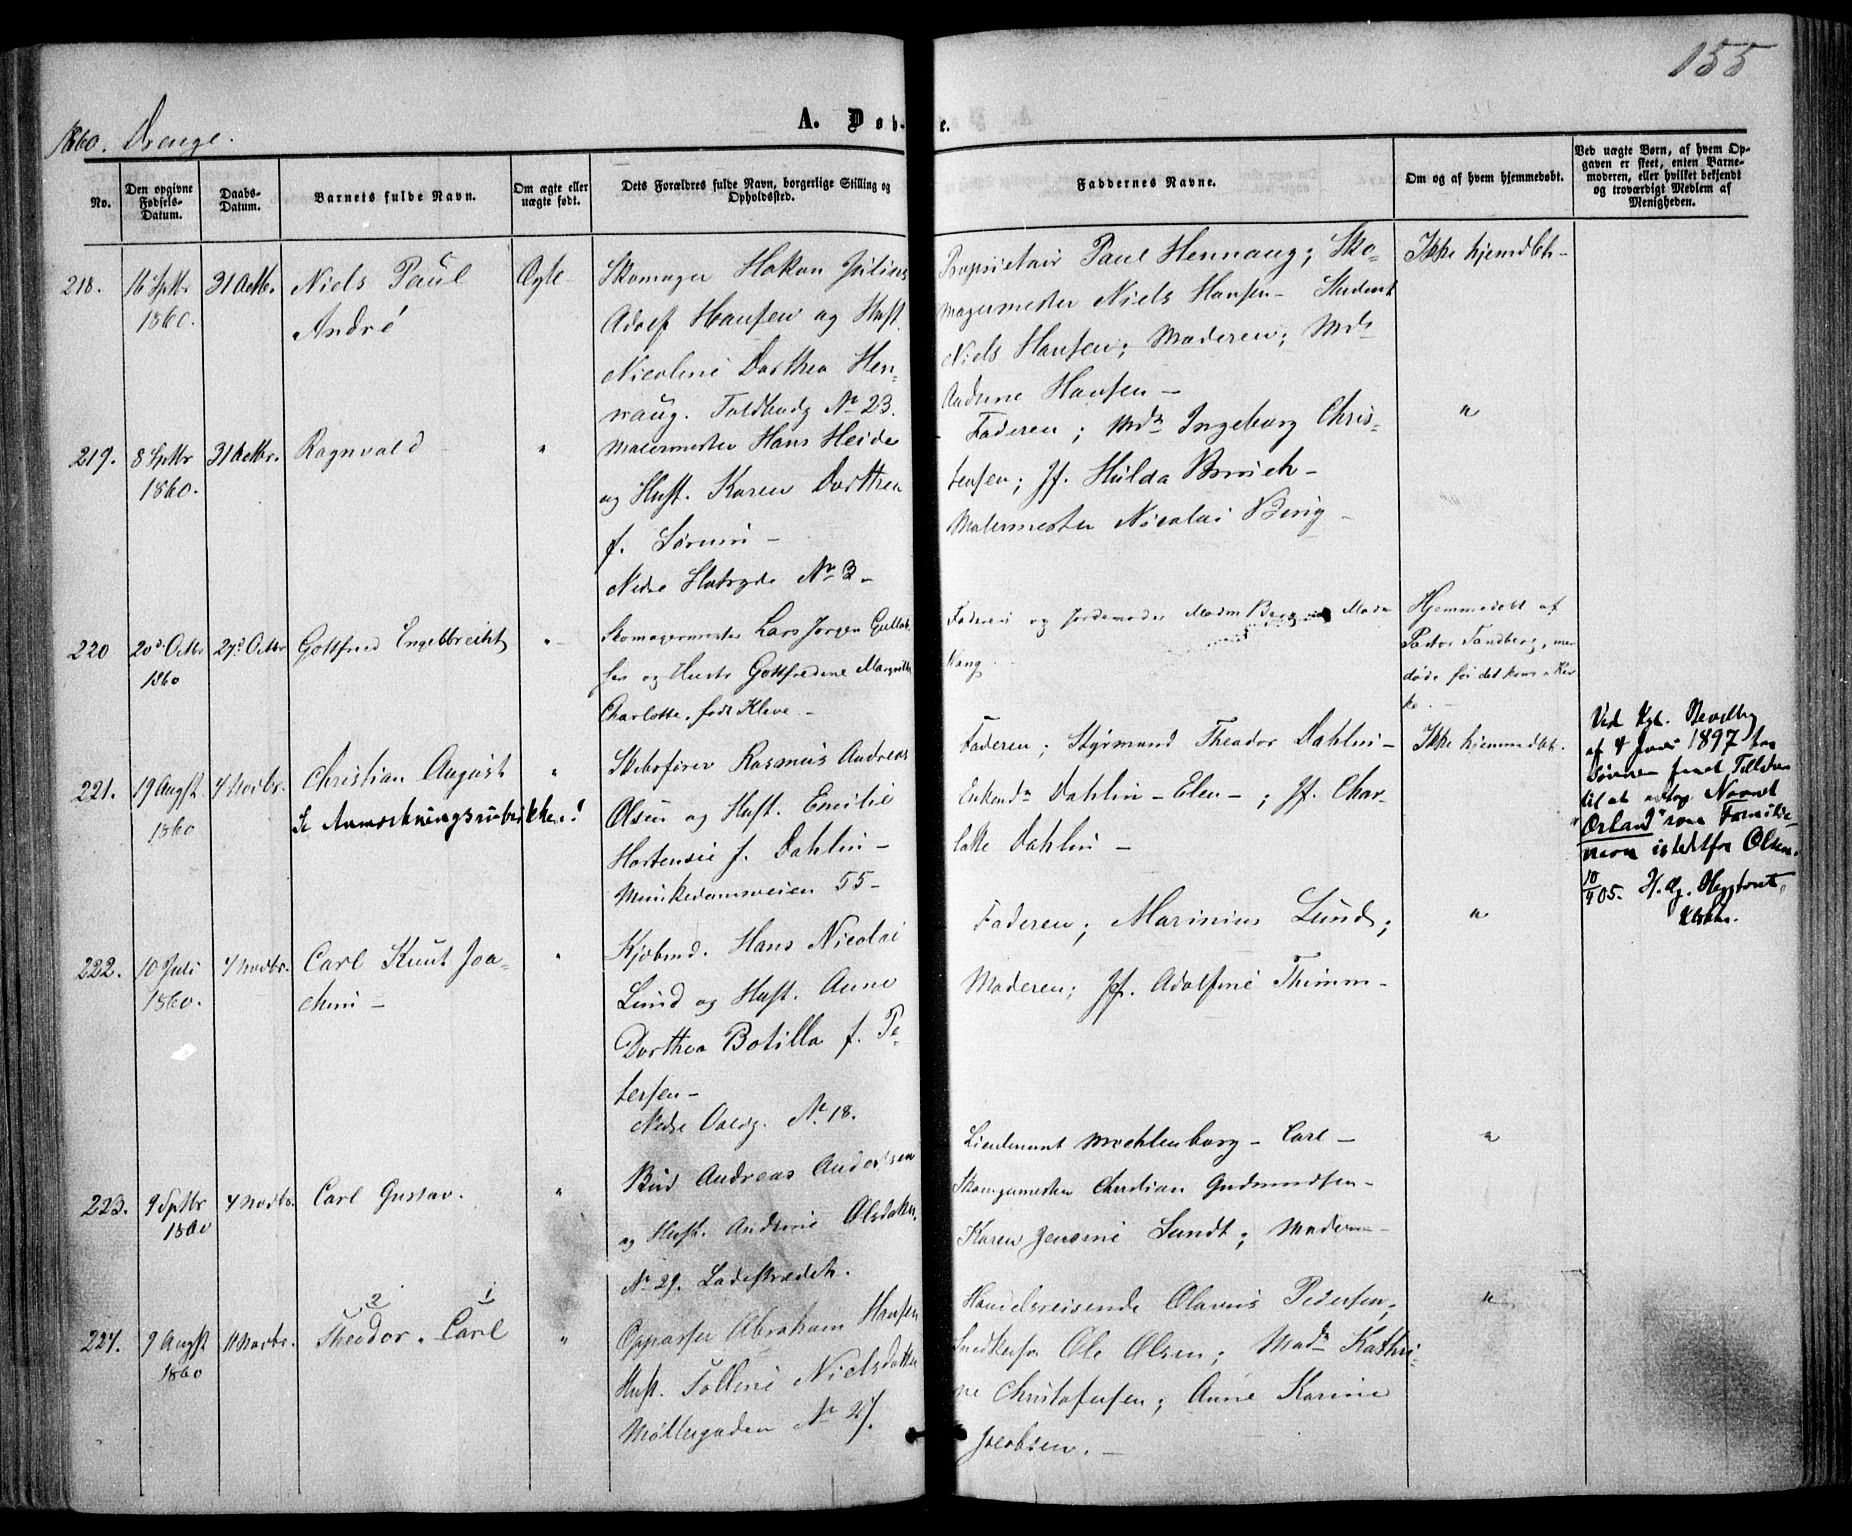 155
1860. Drenge.
A. Døb- e.
No.
Den opgivne Fødsels-Datum.
Daabs-Datum.
Barnets fulde Navn.
Om ægte eller uægte født.
Dets Forældres fulde Navn, borgerlige Stilling og Opholdssted.
Faddernes Navne.
Om og af hvem hjemmedøbt.
Ved uægte Børn, af hvem Opgaven er skeet, enten Barnemoderen, eller hvilket bekjendt og troværdigt Medlem af Menigheden.
218.
16 Sptbr
1860.
31 Octbr.
Niels Paul
André
Ægte
Skomager Hakon Julius
Adolf Hansen og Hust.
Nicoline Dorthea Hen-
naug. Toldbodg No 23.
Proprietair Paul Hennaug; Sko-
magermester Niels Hansen - Student
Niels Hansen; Moderen; Mds
Andrine Hansen -
Ikke hjemdbt -
219.
8 Sptbr
1860.
31 Octbr.
Ragnvald
"
Malermester Hans Heide
og Hust. Karen Dorthea
f. Sørum -
Nedre No 3 -
Faderen; Mdm Ingeborg Chris-
tensen; Jf. Hulda
Malermester Nicolai Bing -
"
220
20de Octbr
1860
27de Octbr
Gottfred Engelbrecht
"
Skomagermester Lars Jørgen
sen og Hustr Gottfredine
Charlotte, født Kleve -
Faderen og Jordemoder Madm Berg
Vang
Hjemmedøbt af
Pastor Tandberg, men
døde før det kom i Kir-
ke. -
221.
19 Augst
1860
4 Novbr.
Christian August
Se Anmærkningsrubrikken!
"
Rasmus Andreas
Olsen og Hust. Emilie
Hortensie f. Dahlin -
Munkedamsveien 55 -
Faderen; Styrmand Theodor Dahlin -
Dahlin - Elen -; Jf. Char-
lotte Dahlin -
Ikke hjemmedbt.
Ved Kgl. Bevilling
af 4 Juni 1897
Navnet
"Ørland" som Familie-
navn istedetfor Olsen.
10/4 05.
222.
10 Juli
1860.
4 Novbr.
Carl Knut Joa-
chim -
"
Kjøbmd. Hans Nicolai
Lund og Hust. Anne
Dorthea Botilla f. Pe-
tersen -
Nedre No 18.
Faderen; Marinius Lund;
Moderen; Jf. Adolfine Thimm -
"
223.
9 Sptbr
1860
4 Novbr.
Carl Gustav.
"
Bud Andreas Andersen
og Hust. Andrine Olsdatter
No 29. Ladestrædet.
Lieutenant Mechlenburg - Carl -
Skomagermester Christian Gudmundsen -
Karen Jensine Lundt; Moderen -
"
224.
9 Augst
1860
11 Novbr.
2 1
Theodor. Carl
"
Oppasser Abraham Hansen
Hust. Tolline Nielsdatter
Møllergaden No 27.
Handelsreisende Olavus Pedersen;
Snedkersv Ole Olsen; Madm Kathri-
ne Christofersen; Anne Karine
Jacobsen. -
"